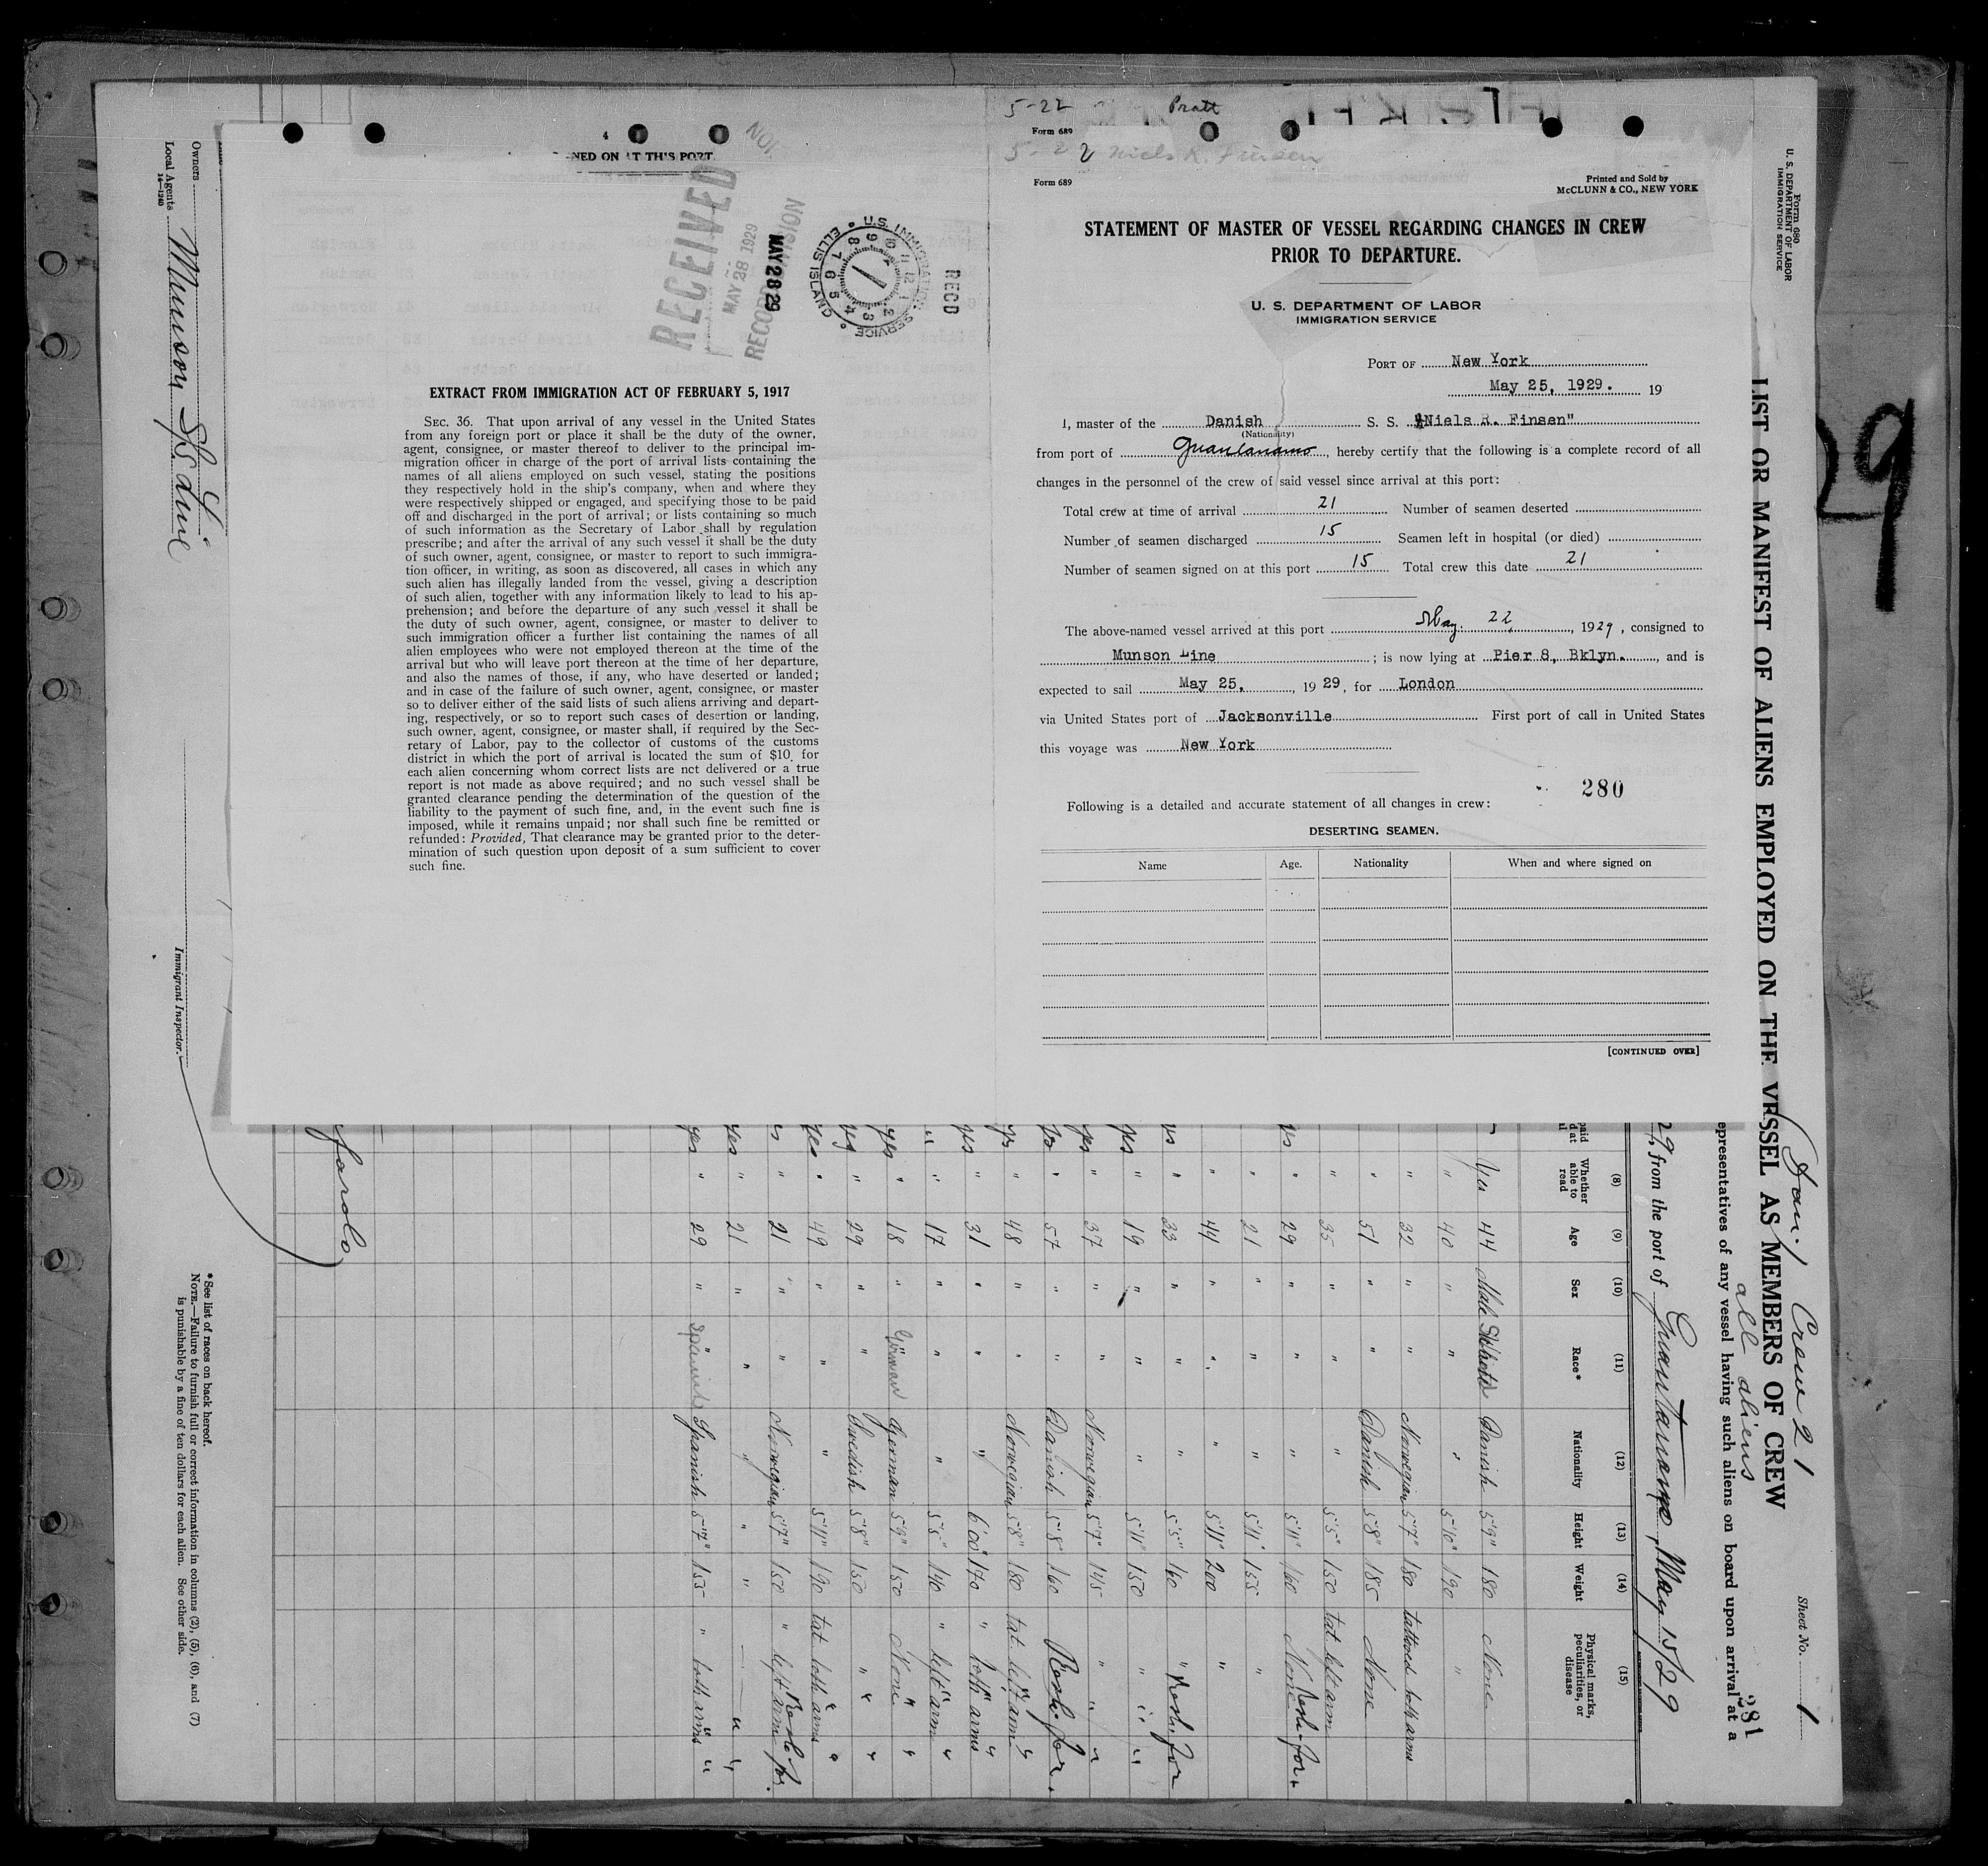 5-22 Pratt
Form 689
5-22 2 Niels R. Finsen
Form 689
Printed and Sold by
McCLUNN & CO., NEW YORK
STATEMENT OF MASTER OF VESSEL REGARDING CHANGES IN CREW
PRIOR TO DEPARTURE.
U. S. DEPARTMENT OF LABOR
IMMIGRATION SERVICE
PORT OF New York
May 25, 1929. 19
I, master of the Danish S. S. "Niels R. Finsen"
(Nationality)
from port of Guantanamo, hereby certify that the following is a complete record of all
changes in the personnel of the crew of said vessel since arrival at this port:
Total crew at time of arrival 21 Number of seamen deserted
Number of seamen discharged 15 Seamen left in hospital (or died)
Number of seamen signed on at this port 15 Total crew this date 21
The above-named vessel arrived at this port May. 22, 1929, consigned to
Munson Line; is now lying at Pier 8, Bklyn., and is
expected to sail May 25, 1929, for London
via United States port of Jacksonville First port of call in United States
this voyage was New York
280
Following is a detailed and accurate statement of all changes in crew:
DESERTING SEAMEN.
Name Age. Nationality When and where signed on
[CONTINUED OVER]
4
NED ON AT THIS PORT.
RECEIVED
MAY 28 1929
RECORD DIVISION
MAY 28 29
U.S. IMMIGRATION SERVICE
ELLIS ISLAND
RECD
EXTRACT FROM IMMIGRATION ACT OF FEBRUARY 5, 1917
SEC. 36. That upon arrival of any vessel in the United States
from any foreign port or place it shall be the duty of the owner,
agent, consignee, or master thereof to deliver to the principal im-
migration officer in charge of the port of arrival lists containing the
names of all aliens employed on such vessel, stating the positions
they respectively hold in the ship's company, when and where they
were respectively shipped or engaged, and specifying those to be paid
off and discharged in the port of arrival; or lists containing so much
of such information as the Secretary of Labor shall by regulation
prescribe; and after the arrival of any such vessel it shall be the duty
of such owner, agent, consignee, or master to report to such immigra-
tion officer, in writing, as soon as discovered, all cases in which any
such alien has illegally landed from the vessel, giving a description
of such alien, together with any information likely to lead to his ap-
prehension; and before the departure of any such vessel it shall be
the duty of such owner, agent, consignee, or master to deliver to
such immigration officer a further list containing the names of all
alien employees who were not employed thereon at the time of the
arrival but who will leave port thereon at the time of her departure,
and also the names of those, if any, who have deserted or landed;
and in case of the failure of such owner, agent, consignee, or master
so to deliver either of the said lists of such aliens arriving and depart-
ing, respectively, or so to report such cases of desertion or landing,
such owner, agent, consignee, or master shall, if required by the Sec-
retary of Labor, pay to the collector of customs of the customs
district in which the port of arrival is located the sum of $10 for
each alien concerning whom correct lists are not delivered or a true
report is not made as above required; and no such vessel shall be
granted clearance pending the determination of the question of the
liability to the payment of such fine, and, in the event such fine is
imposed, while it remains unpaid; nor shall such fine be remitted or
refunded: Provided, That clearance may be granted prior to the deter-
mination of such question upon deposit of a sum sufficient to cover
such fine.
Form 680
U. S. DEPARTMENT OF LABOR
IMMIGRATION SERVICE
29
Crew 21
all aliens
Sheet No. 1
LIST OR MANIFEST OF ALIENS EMPLOYED ON THE VESSEL AS MEMBERS OF CREW
epresentatives of any vessel having such aliens on board upon arrival at a
281
29, from the port of Guantanamo, May 15/29
(8) (9) (10) (11) (12) (13) (14) (15)
Whether able to read Age Sex Race* Nationality Height Weight Physical marks, peculiarities, or disease
Yes 44 Male Danish 5'9" 180 None
" 40 " " " 5'10" 190 "
" 32 " " Norwegian 5'7" 180 tattooed both arms
" 51 " " Danish 5'8" 185 None
" 35 " " " 5'5" 150 tat. left arm
" 29 " " " 5'11" 160 None
" 21 " " " 5'11" 155 "
" 44 " " " 5'11" 200 "
" 23 " " " 5'5" 160 "
yes " 19 " " " 5'11" 150 "
yes " 37 " " Norwegian 5'7" 145 "
" 57 " " Danish 5'8" 160
" 48 " " Norwegian 5'8" 180 tat. left arm
yes " 31 " " " 6'00" 170 " both arms
" " 17 " " " 5'5" 140 " left arm
yes " 18 " German German 5'9" 150 None
" 29 " " Swedish 5'8" 150 "
yes " 49 " " " 5'11" 190 tat. both arms
" 21 " " Norwegian 5'7" 150 " left arm
yes " 21 " " " " "
yes " 29 " Spanish Spanish 5'7" 155 " both arms
Owners
Local Agents Munson S/S Line
14—1240
Immigrant Inspector.
*See list of races on back hereof.
NOTE.—Failure to furnish full or correct information in columns (2), (5), (6), and (7)
is punishable by a fine of ten dollars for each alien. See other side.